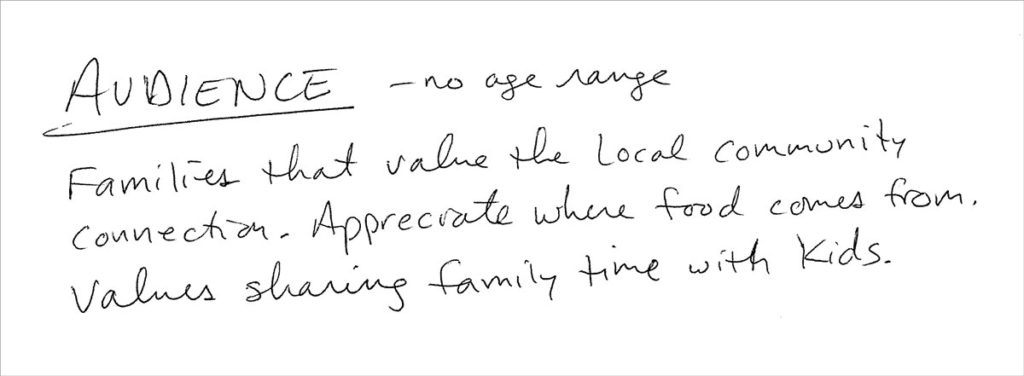 AUDIENCE - no age range
Families that value the Local community
connection. Appreciate where food comes from.
Values sharing family time with Kids.